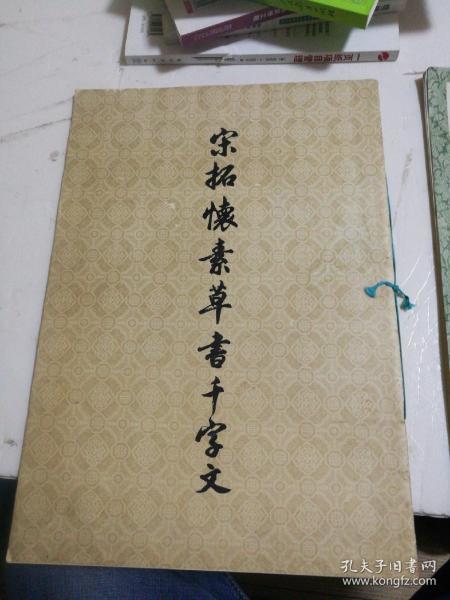 宋拓懷素草書千字文
孔夫子旧书网
www.kongfz.com